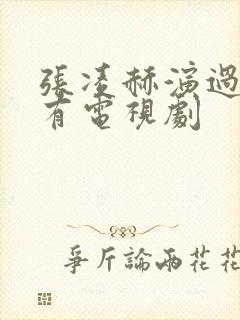 張凌赫演過
有電視劇
爭斤論兩花花